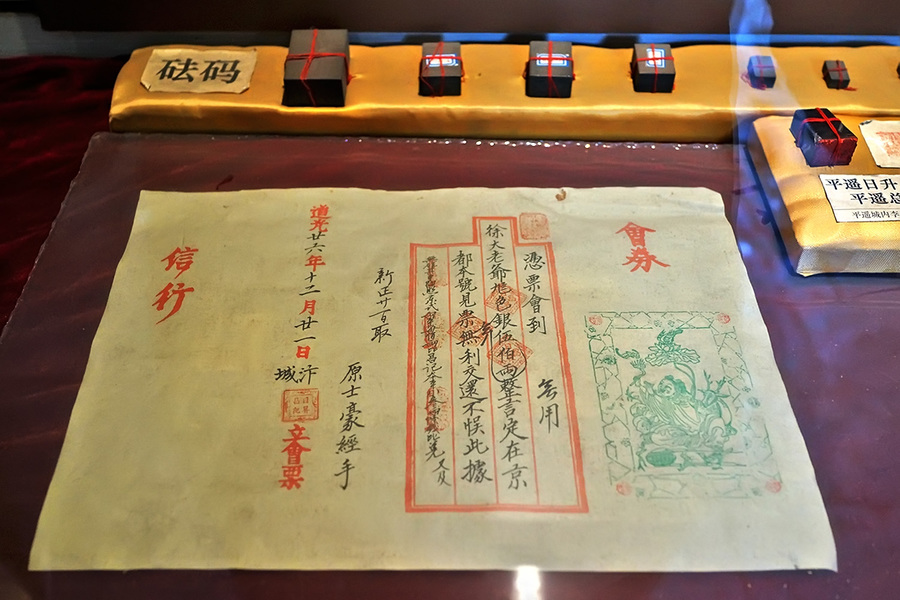 砝码
平遥日升
平遥总
平遥城内李
會券
憑票會到
徐大老爺地色銀伍佰兩整言定在京
都本號見票無利交還不悞此據
無用
新正廿日取
原士豪經手
道光廿六年十二月廿一日汴
城
立會票
信行